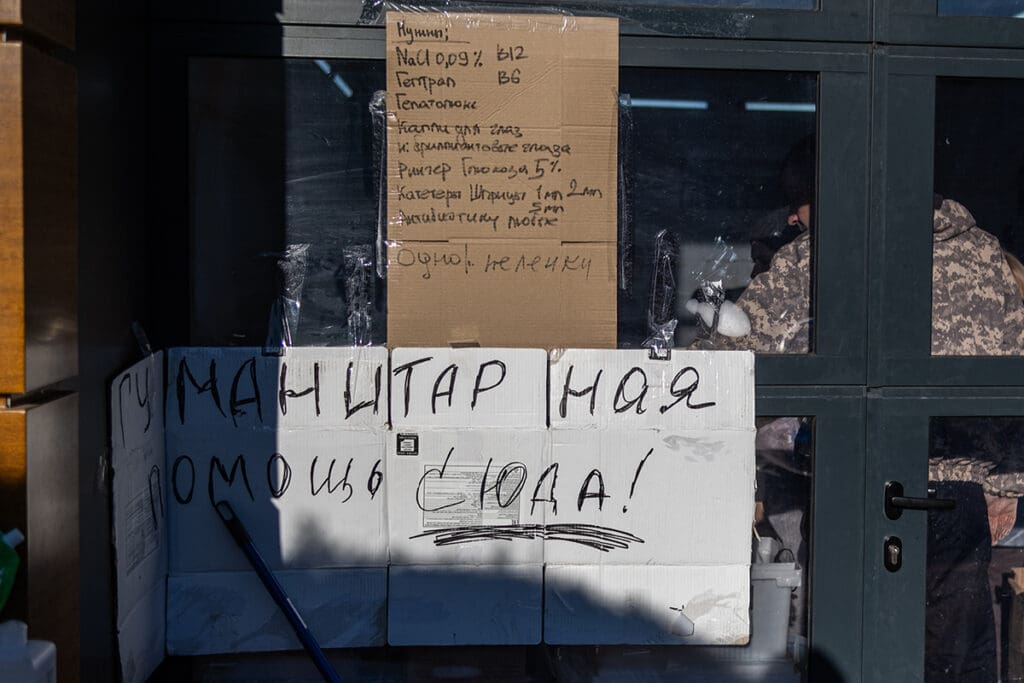 Нужны:
NaCl 0,09% B12
Гептрал B6
Гепатолюкс
Капли для глаз
и бриллиантовые глаза
Рингер Глюкоза 5%
Катетеры Шприцы 1мл 2мл
5мл
Антибиотики любые
Однор. пеленки
ГУМАНИТАРНАЯ
ПОМОЩЬ СЮДА!